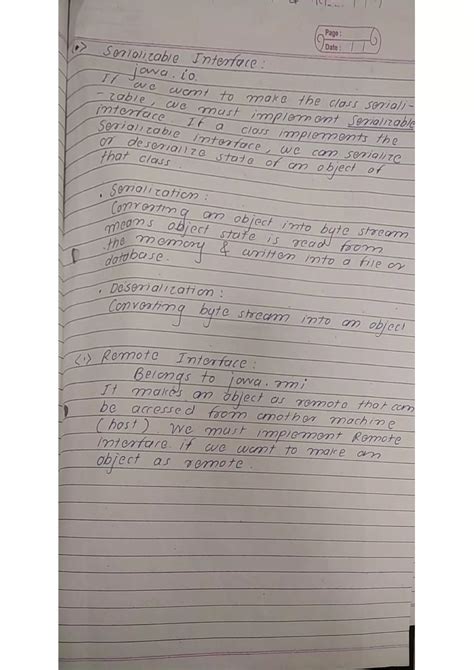 Page:
Date: / /
Serializable Interface:
java.io.
If we want to make the class seriali-
-zable, we must implement Serializable
interface. If a class implements the
Serializable Interface, we can serialize
or deserialize state of an object of
that class.
• Serialization:
Converting an object into byte stream
means object state is read from
the memory & written into a file or
database.
• Deserialization:
Converting byte stream into an object
<i> Remote Interface:
Belongs to java.rmi
It makes an object as remote that can
be accessed from another machine
(host). We must implement Remote
Interface if we want to make an
object as remote.